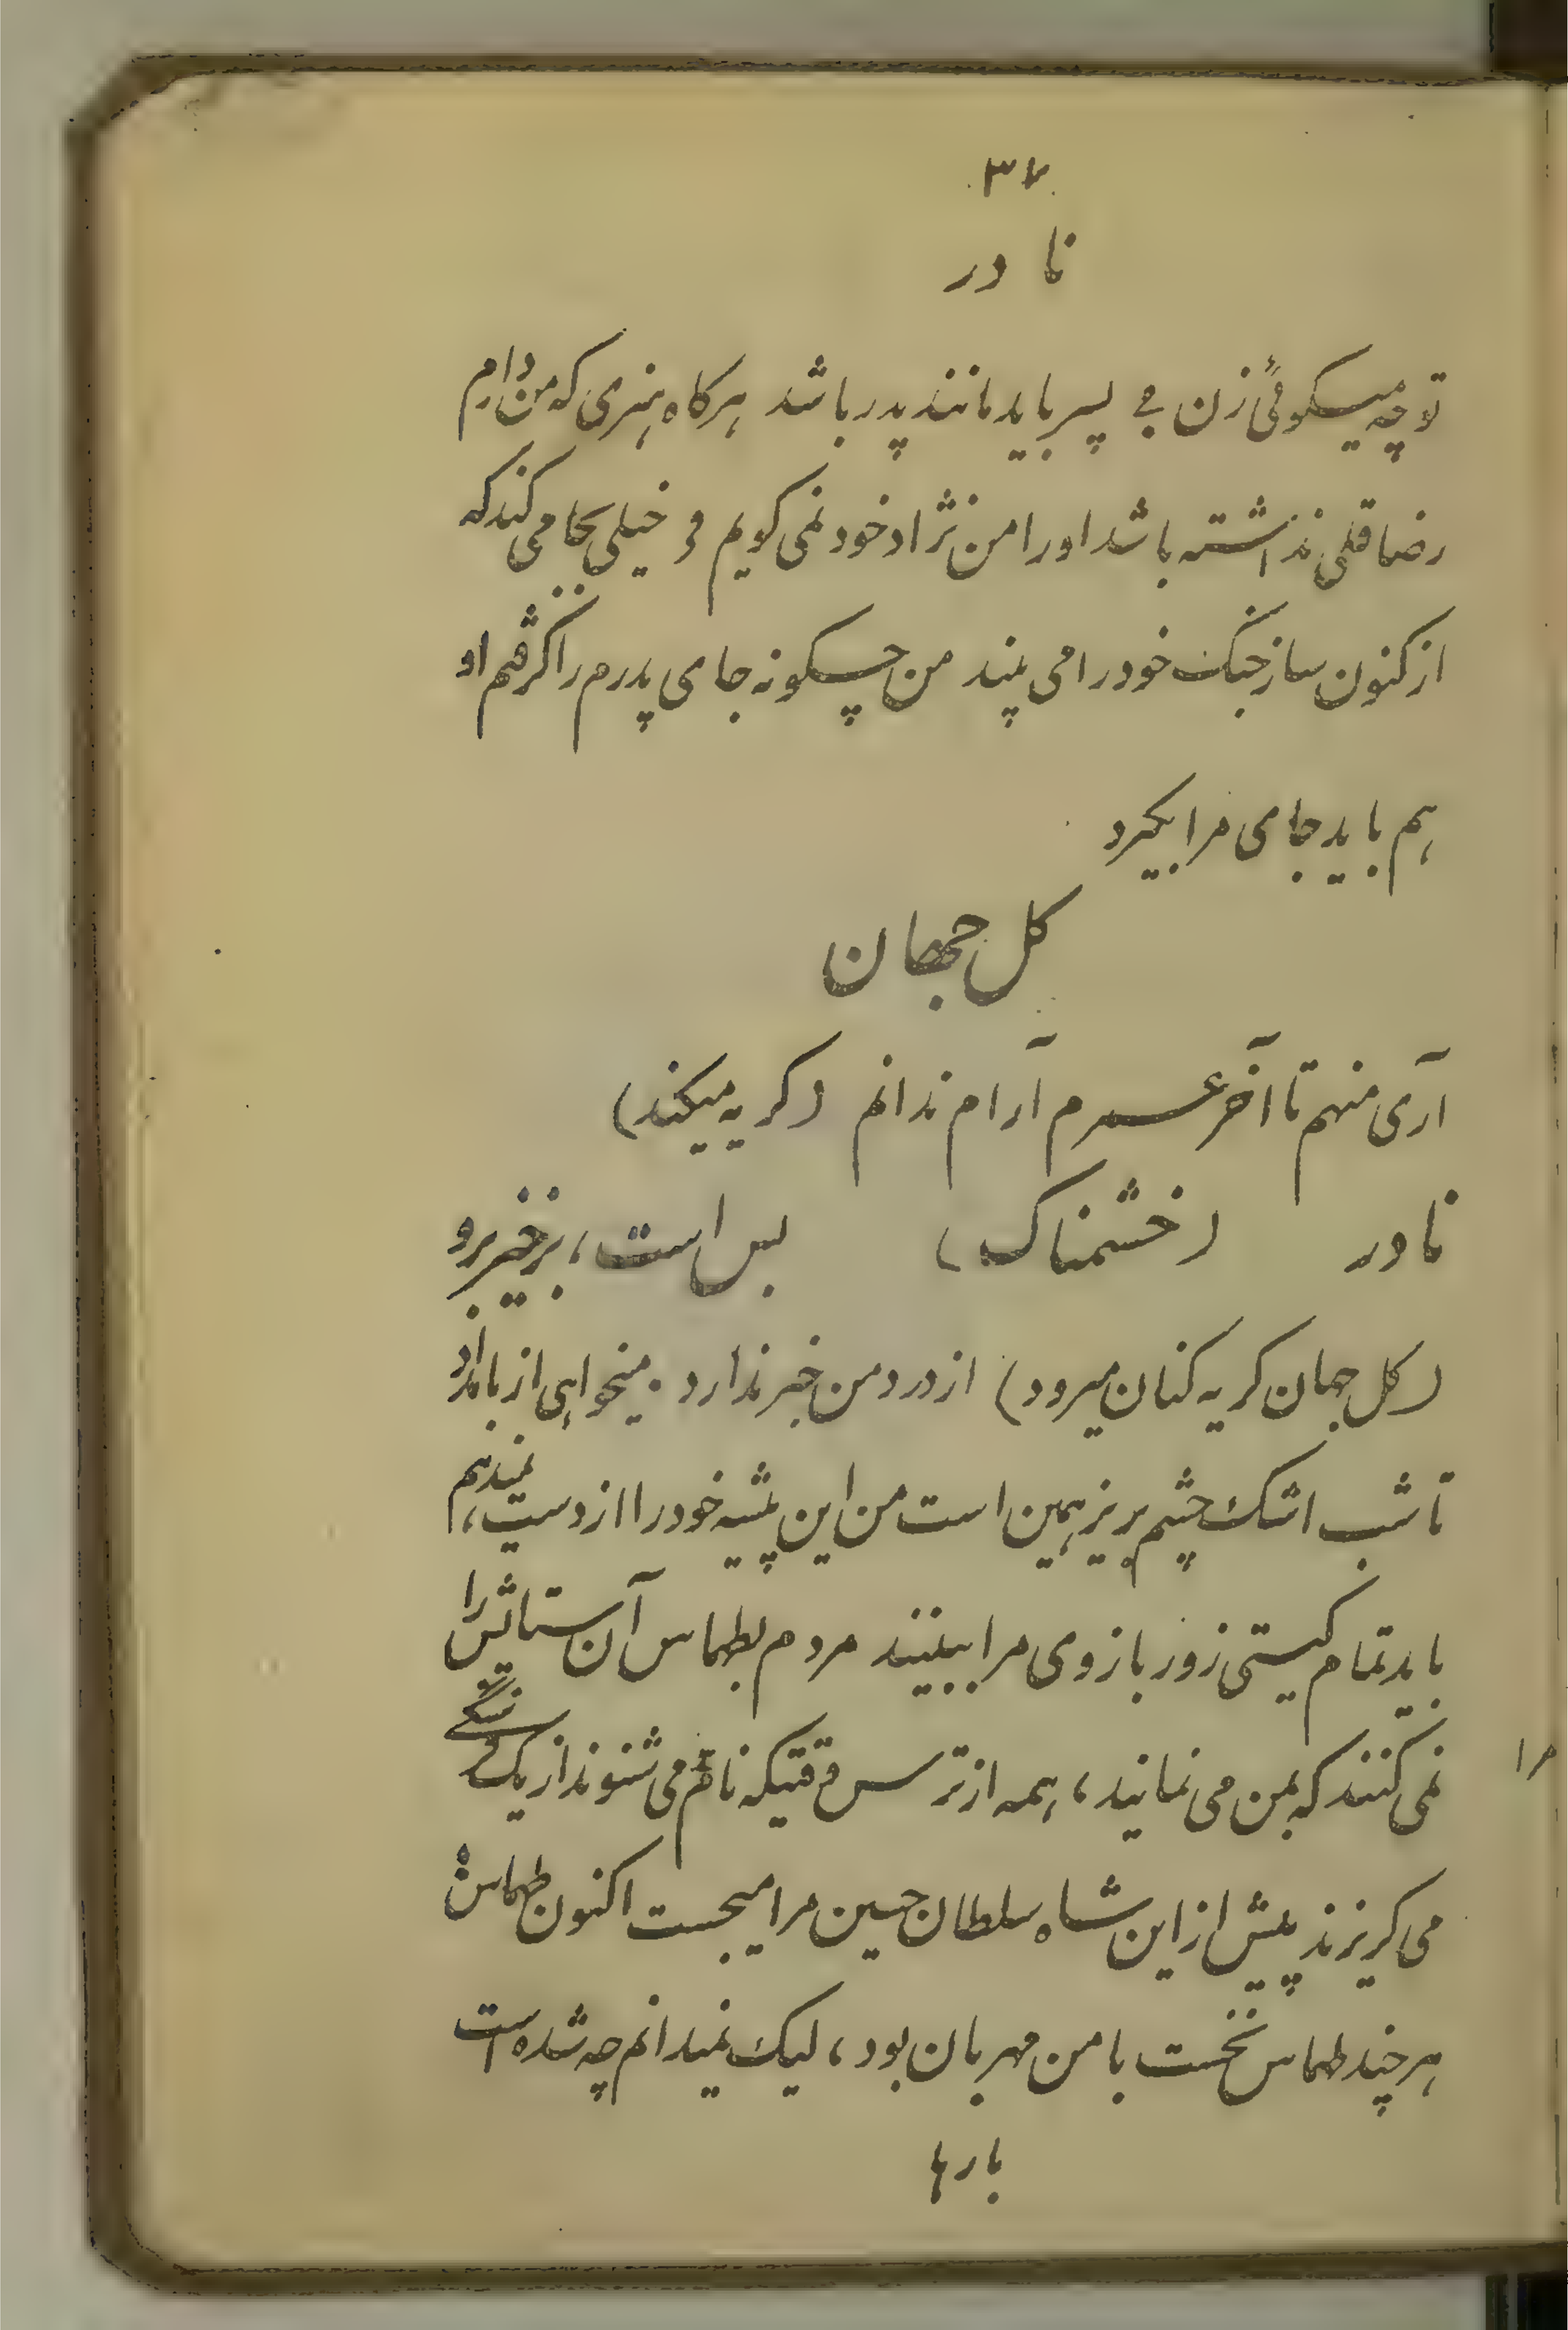 ۳۷
نادر
تو چه میکوئی زن فی پسر باید مانند پدر باشد هرکاه هنری که من دارم
رضاقلی نداشته باشد اورا من نژاد خود نمی کویم و خیلی بجا می کند که
از کنون ساز جنک خودرا می بیند من چکونه جای پدرم را کرفتم او
هم باید جای مرا بکیرد
کل جهان
آری منهم تا آخر عمرم آرام ندانم (کریه میکند)
نادر (خشمناک) بس است، برخیز برو
(کل جهان کریه کنان میرود) از درد من خبر ندارد. میخواهی از بامداد
تا شب اشک چشم بریز همین است من این پیشه خودرا از دست نمیدهم،
باید تمام کیتی زور بازوی مرا ببینند مردم بطهماس آن ستایش را
نمی کنند که بمن می نمایند، همه از ترس وقتیکه نام مرا می شنوند از یک فرسنگی
می کریزند پیش از این شاه سلطان حسین مرا میجست اکنون طهماس
هر چند طهماس نخست با من مهربان بود، لیک نمیدانم چه شده است
بارها